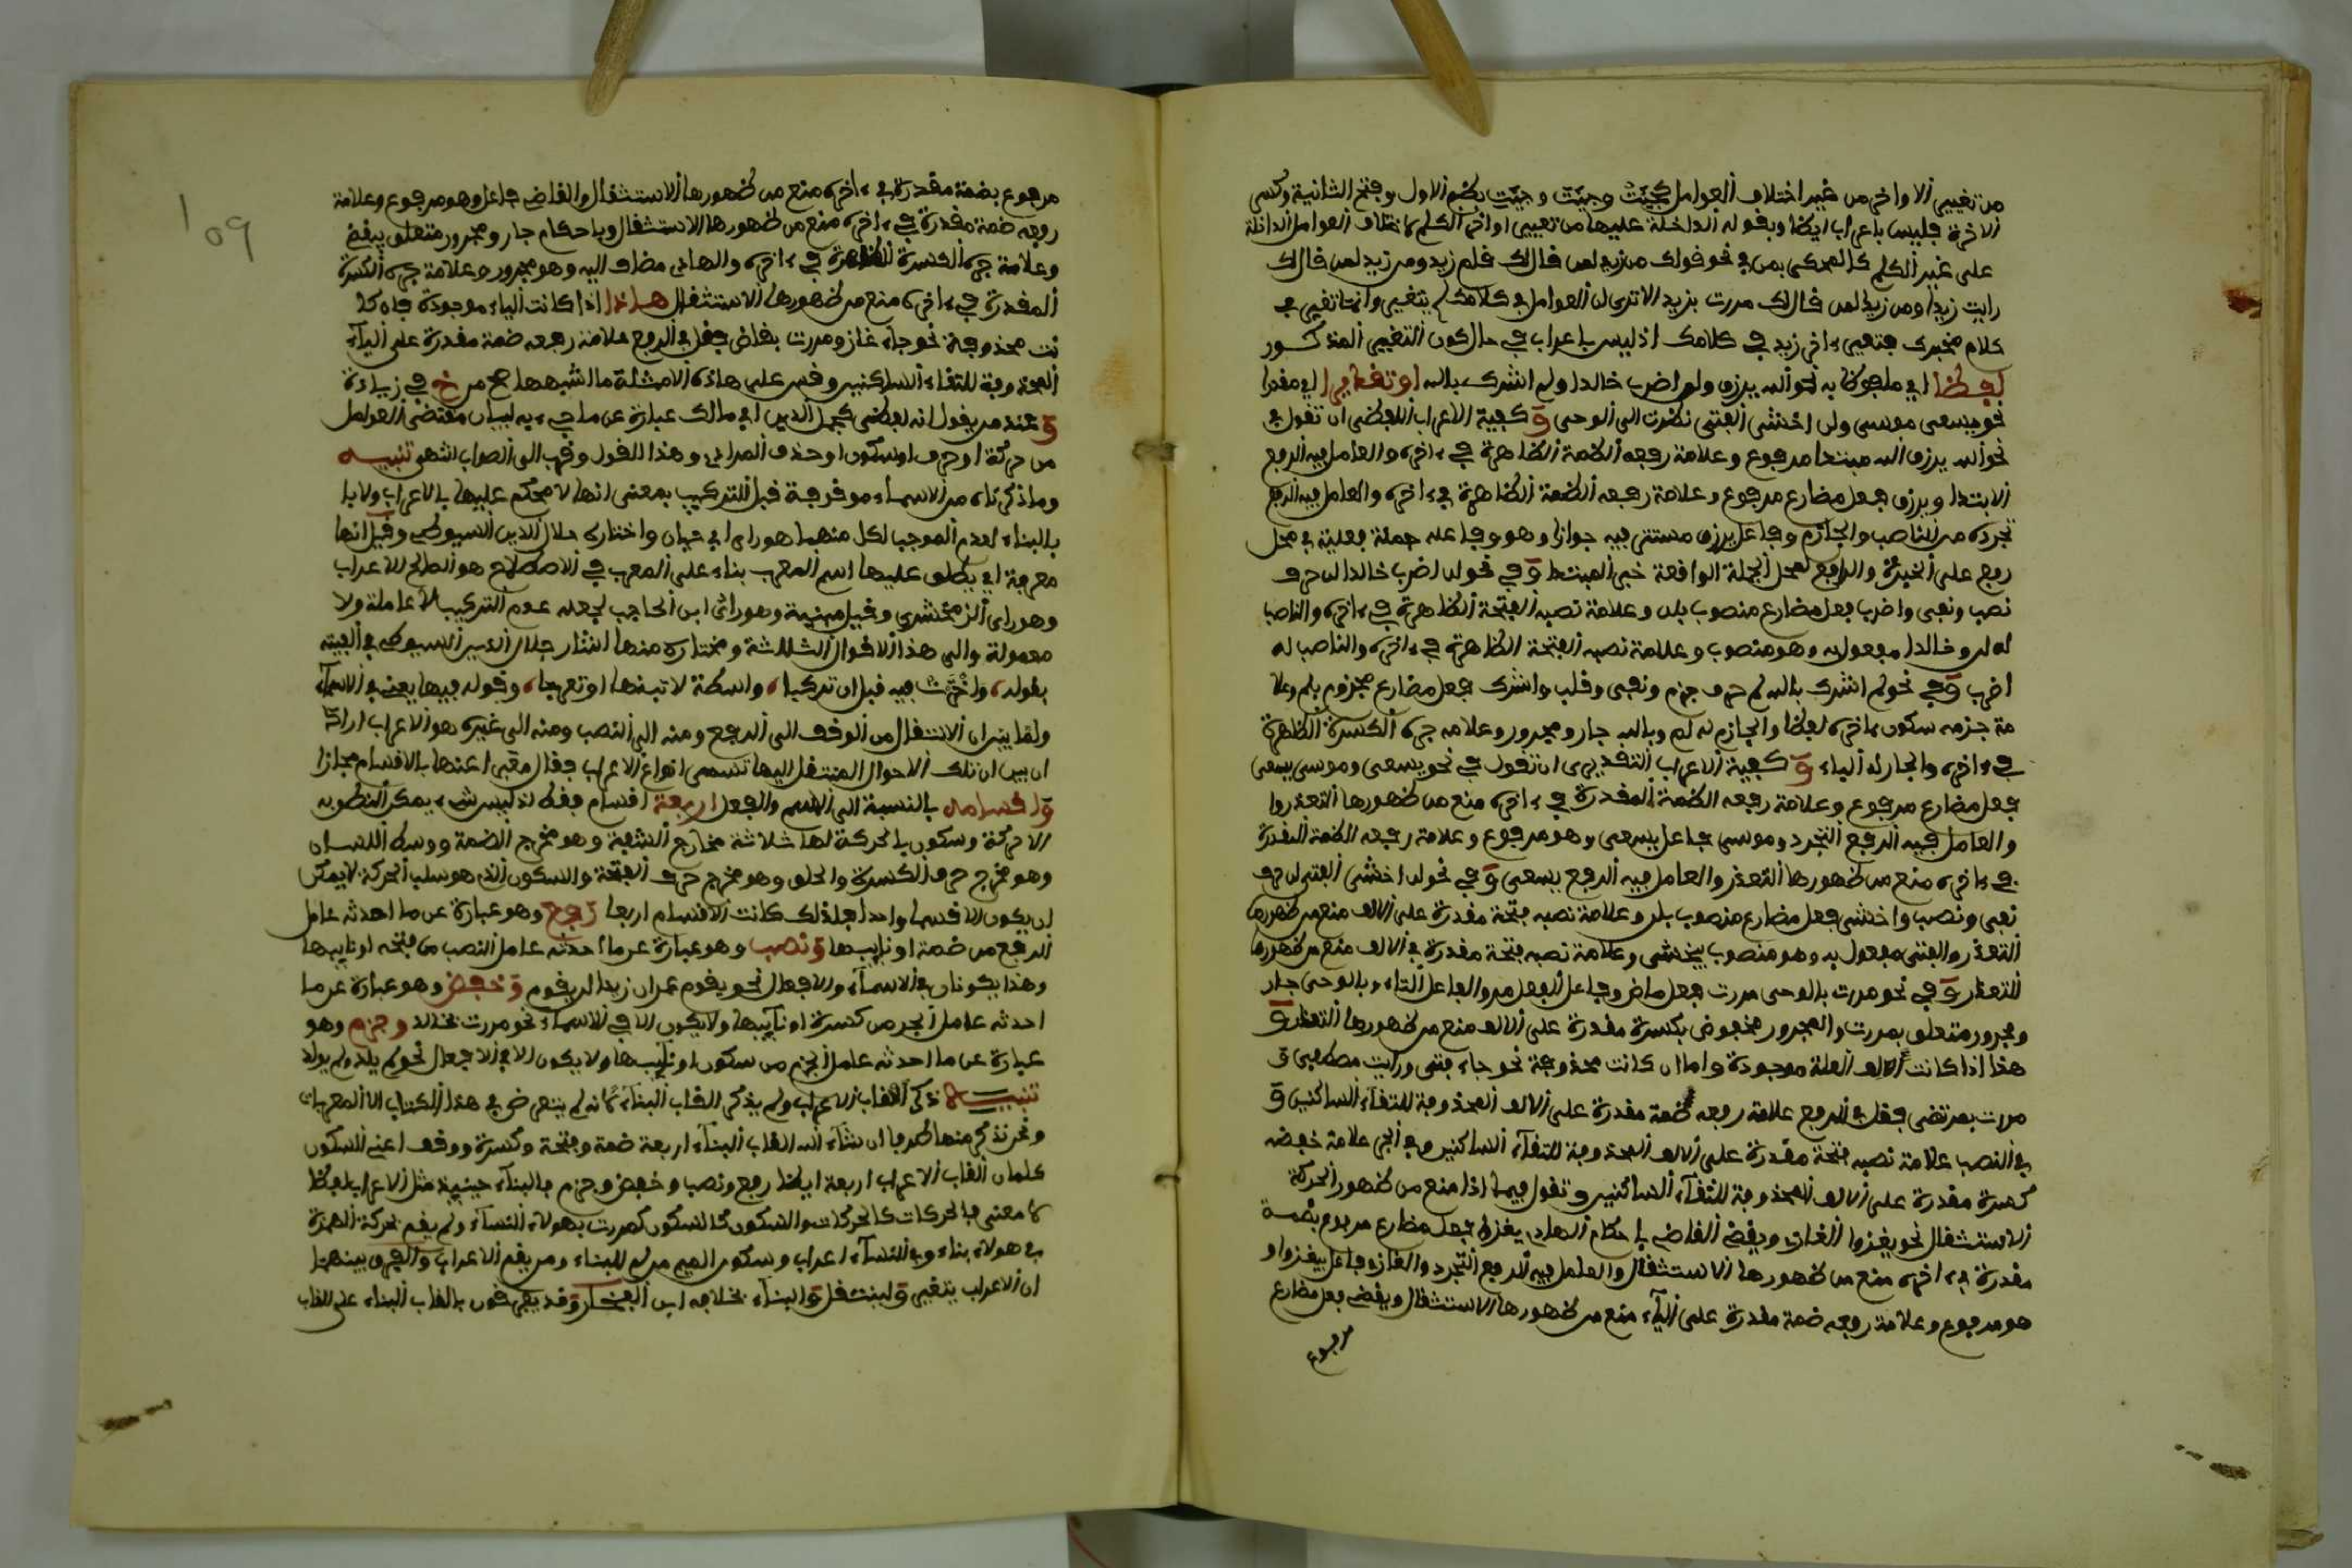 من تغيير الاواخر من غير اختلاف العوامل كجيئت وجيئت وجيئت بضم الاول وفتح الثانية وكسر
الاخرة فليس باعراب ايضا وبقوله الداخلة عليها من تغيير اواخر الكلم لاختلاف العوامل الداخلة
على غير الكلم كالمحكي بمن في نحو قولك من زيد لمن قال لك قلم زيد ومن زيد لمن قال لك
رايت زيدا ومن زيد لمن قال لك مررت بزيد الا ترى ان العوامل في كلامك لم يتغير وانما تغير في
كلام مخبرك فتغير ءاخر زيد في كلامك اذ ليس باعراب في حال كون التغيير المذكور
لفظا اي ملفوظا به نحو الله يرزق ولن اضرب خالدا ولم اشرك بالله او تقديرا اي مقدرا
نحو يسعى موسى ولن اخشى الفتى نظرت الى الوحى وكيفية الاعراب اللفظي ان تقول في
نحو الله يرزق الله مبتدا مرفوع وعلامة رفعه الضمة الظاهرة في ءاخره والعامل فيه الرفع
الابتدا ويرزق فعل مضارع مرفوع وعلامة رفعه الضمة الظاهرة في ءاخره والعامل فيه الرفع
تجرده من الناصب والجازم وفاعل يرزق مستتر فيه جوازا وهو وفاعله جملة فعلية في محل
رفع على الخبرية والرافع لمحل الجملة الواقعة خبر المبتدا وفي نحو لن اضرب خالدا لن حرف
نصب ونفي واضرب فعل مضارع منصوب بلن وعلامة نصبه الفتحة الظاهرة في ءاخره والناصب
له لن وخالدا مفعول به وهو منصوب وعلامة نصبه الفتحة الظاهرة في ءاخره والناصب له
اضرب وفي نحو لم اشرك بالله لم حرف جزم ونفي وقلب واشرك فعل مضارع مجزوم بلم وعلا
مة جزمه سكون ءاخره لفظا والجازم له لم وبالله جار ومجرور وعلامة جره الكسرة الظاهرة
في ءاخره والجار له الباء وكيفية الاعراب التقديري ان تقول في نحو يسعى وموسى يسعى
فعل مضارع مرفوع وعلامة رفعه الضمة المقدرة في ءاخره منع من ظهورها التعذر وا
والعامل فيه الرفع التجرد وموسى فاعل يسعى وهو مرفوع وعلامة رفعه الضمة المقدرة
في ءاخره منع من ظهورها التعذر والعامل فيه الرفع يسعى وفي نحو لن اخشى الفتى لن حرف
نفي ونصب واخشى فعل مضارع منصوب بلن وعلامة نصبه فتحة مقدرة على الالف منع من ظهورها
التعذر والفتى مفعول به وهو منصوب بيخشى وعلامة نصبه فتحة مقدرة في الالف منع من ظهورها
التعذر وفي نحو مررت بالوحى مررت فعل ماض وفاعل الفعل مر والفاعل التاء وبالوحى جار
ومجرور متعلق بمررت والمجرور مخفوض بكسرة مقدرة على الالف منع من ظهورها التعذر و
هذا اذا كانت الالف العلة موجودة واما ان كانت محذوفة نحو جاء فتى ورايت مصطفى و
مررت بمرتضى فقل في الرفع علامة رفعه ضمة مقدرة على الالف المحذوفة للتقاء الساكنين و
في النصب علامة نصبه فتحة مقدرة على الالف المحذوفة للتقاء الساكنين وفي الجر علامة خفضه
كسرة مقدرة على الالف المحذوفة للتقاء الساكنين وتقول فيما اذا منع من ظهور الحركة
الاستثقال نحو يغزوا الغازي ويقضي القاضي باحكام الهادي يغزوا فعل مضارع مرفوع بضمة
مقدرة في ءاخره منع من ظهورها الاستثقال والعامل فيه الرفع التجرد والغازي فاعل بيغزوا و
هو مرفوع وعلامة رفعه ضمة مقدرة على الياء منع من ظهورها الاستثقال ويقضي فعل مضارع
مرفوع
109
مرفوع بضمة مقدرة في ءاخره منع من ظهورها الاستثقال والقاضي فاعل وهو مرفوع وعلامة
رفعه ضمة مقدرة في ءاخره منع من ظهورها الاستثقال وباحكام جار ومجرور متعلق بيقضي
وعلامة جره الكسرة الظاهرة في ءاخره والهادي مضاف اليه وهو مجرور وعلامة جره الكسرة
المقدرة في ءاخره منع من ظهورها الاستثقال هذا اذا كانت الياء موجودة فان كا
نت محذوفة نحو جاء غاز ومررت بقاض فقل في الرفع علامة رفعه ضمة مقدرة على الياء
المحذوفة للتقاء الساكنين وقس على هاذه الامثلة ما اشبهها صح من خ في زيادة
وعند من يقول انه لفظي كجمال الدين ابي مالك عبارة عن ما جيء به لبيان مقتضى العوامل
من حركة او حرف او سكون او حذف المرادي وهذا القول اقرب الى الصواب انتهى تنبيه
وما ذكرناه من الاسماء موقوفة قبل التركيب بمعنى انها لا محكم عليها بالاعراب ولا با
بالبناء لعدم الموجب لكل منهما هو راي ابي حيان واختاره جلال الدين السيوطي وقيل انها
معربة اي يطلق عليها اسم المعرب بناء على المعرب في الاصطلاح هو الصالح للاعراب
وهو راي الزمخشري وقيل مبنية وهو راي ابن الحاجب لجعله عدم التركيب لا عاملة ولا
معمولة والى هذا الاقوال الثلاثة ومختاره منها اشار جلال الدين السيوطي في الفيته
بقوله واخترت فيه قبل ان تركبا واسطة لا تبنها او تعربا وقوله فيها يعني في الاسماء
ولما بين ان الانتقال من الوقف الى الرفع ومنه الى النصب ومنه الى غيره هو الاعراب اراد
ان بين ان تلك الاحوال المنتقل اليها تسمى انواع الاعراب فقال معبرا عنها بالاقسام مجازا
واقسامه بالنسبة الى الاسم والفعل اربعة اقسام فقط اذ ليس شيء يمكن النطق به
الا حركة وسكون بالحركة لها ثلاثة مخارج الشفة وهو مخرج الضمة ووسط اللسان
وهو مخرج حرف الكسرة والحلق وهو مخرج حرف الفتحة والسكون الذي هو سلب الحركة لا يمكن
ان يكون الا قسما واحدا فلذلك كانت الاقسام اربعا رفع وهو عبارة عن ما احدثه عامل
الرفع من ضمة او نايبها ونصب وهو عبارة عن ما احدثه عامل النصب من فتحه او نايبها
وهذا يكونان في الاسماء والافعال نحو يقوم عمر ان زيدا لن يقوم وخفض وهو عبارة عن ما
احدثه عامل الجر من كسرة او نايبها ولا يكون الا في الاسماء نحو مررت بخالد وجزم وهو
عبارة عن ما احدثه عامل الجزم من سكون او نايبها ولا يكون الا في الافعال نحو لم يلد ولم يولد
تنبيه ذكر القاب الاعراب ولم يذكر القاب البناء لانه لم يتعرض في هذا الكتاب الا المعربات
ونحن نذكر منها طرفا ان شاء الله القاب البناء اربعة ضمة وفتحة وكسرة ووقف اعني السكون
كلمان القاب الاعراب اربعة ايضا رفع ونصب وخفض وجزم فالبناء حينيذ مثل الاعراب لفظا
لا معنى فالحركات كالحركات والسكون كالسكون كمررت بهولاء النساء ولم يقم بحركة الهمزة
في هولاء بناء وفي النساء اعراب وسكون الميم من لم للبناء ومن يقم الاعراب والفرق بينهما
ان الاعراب يتغير وينتقل والبناء بخلافه ابن الفخار وقد يعرفون بالقاب البناء على القاب